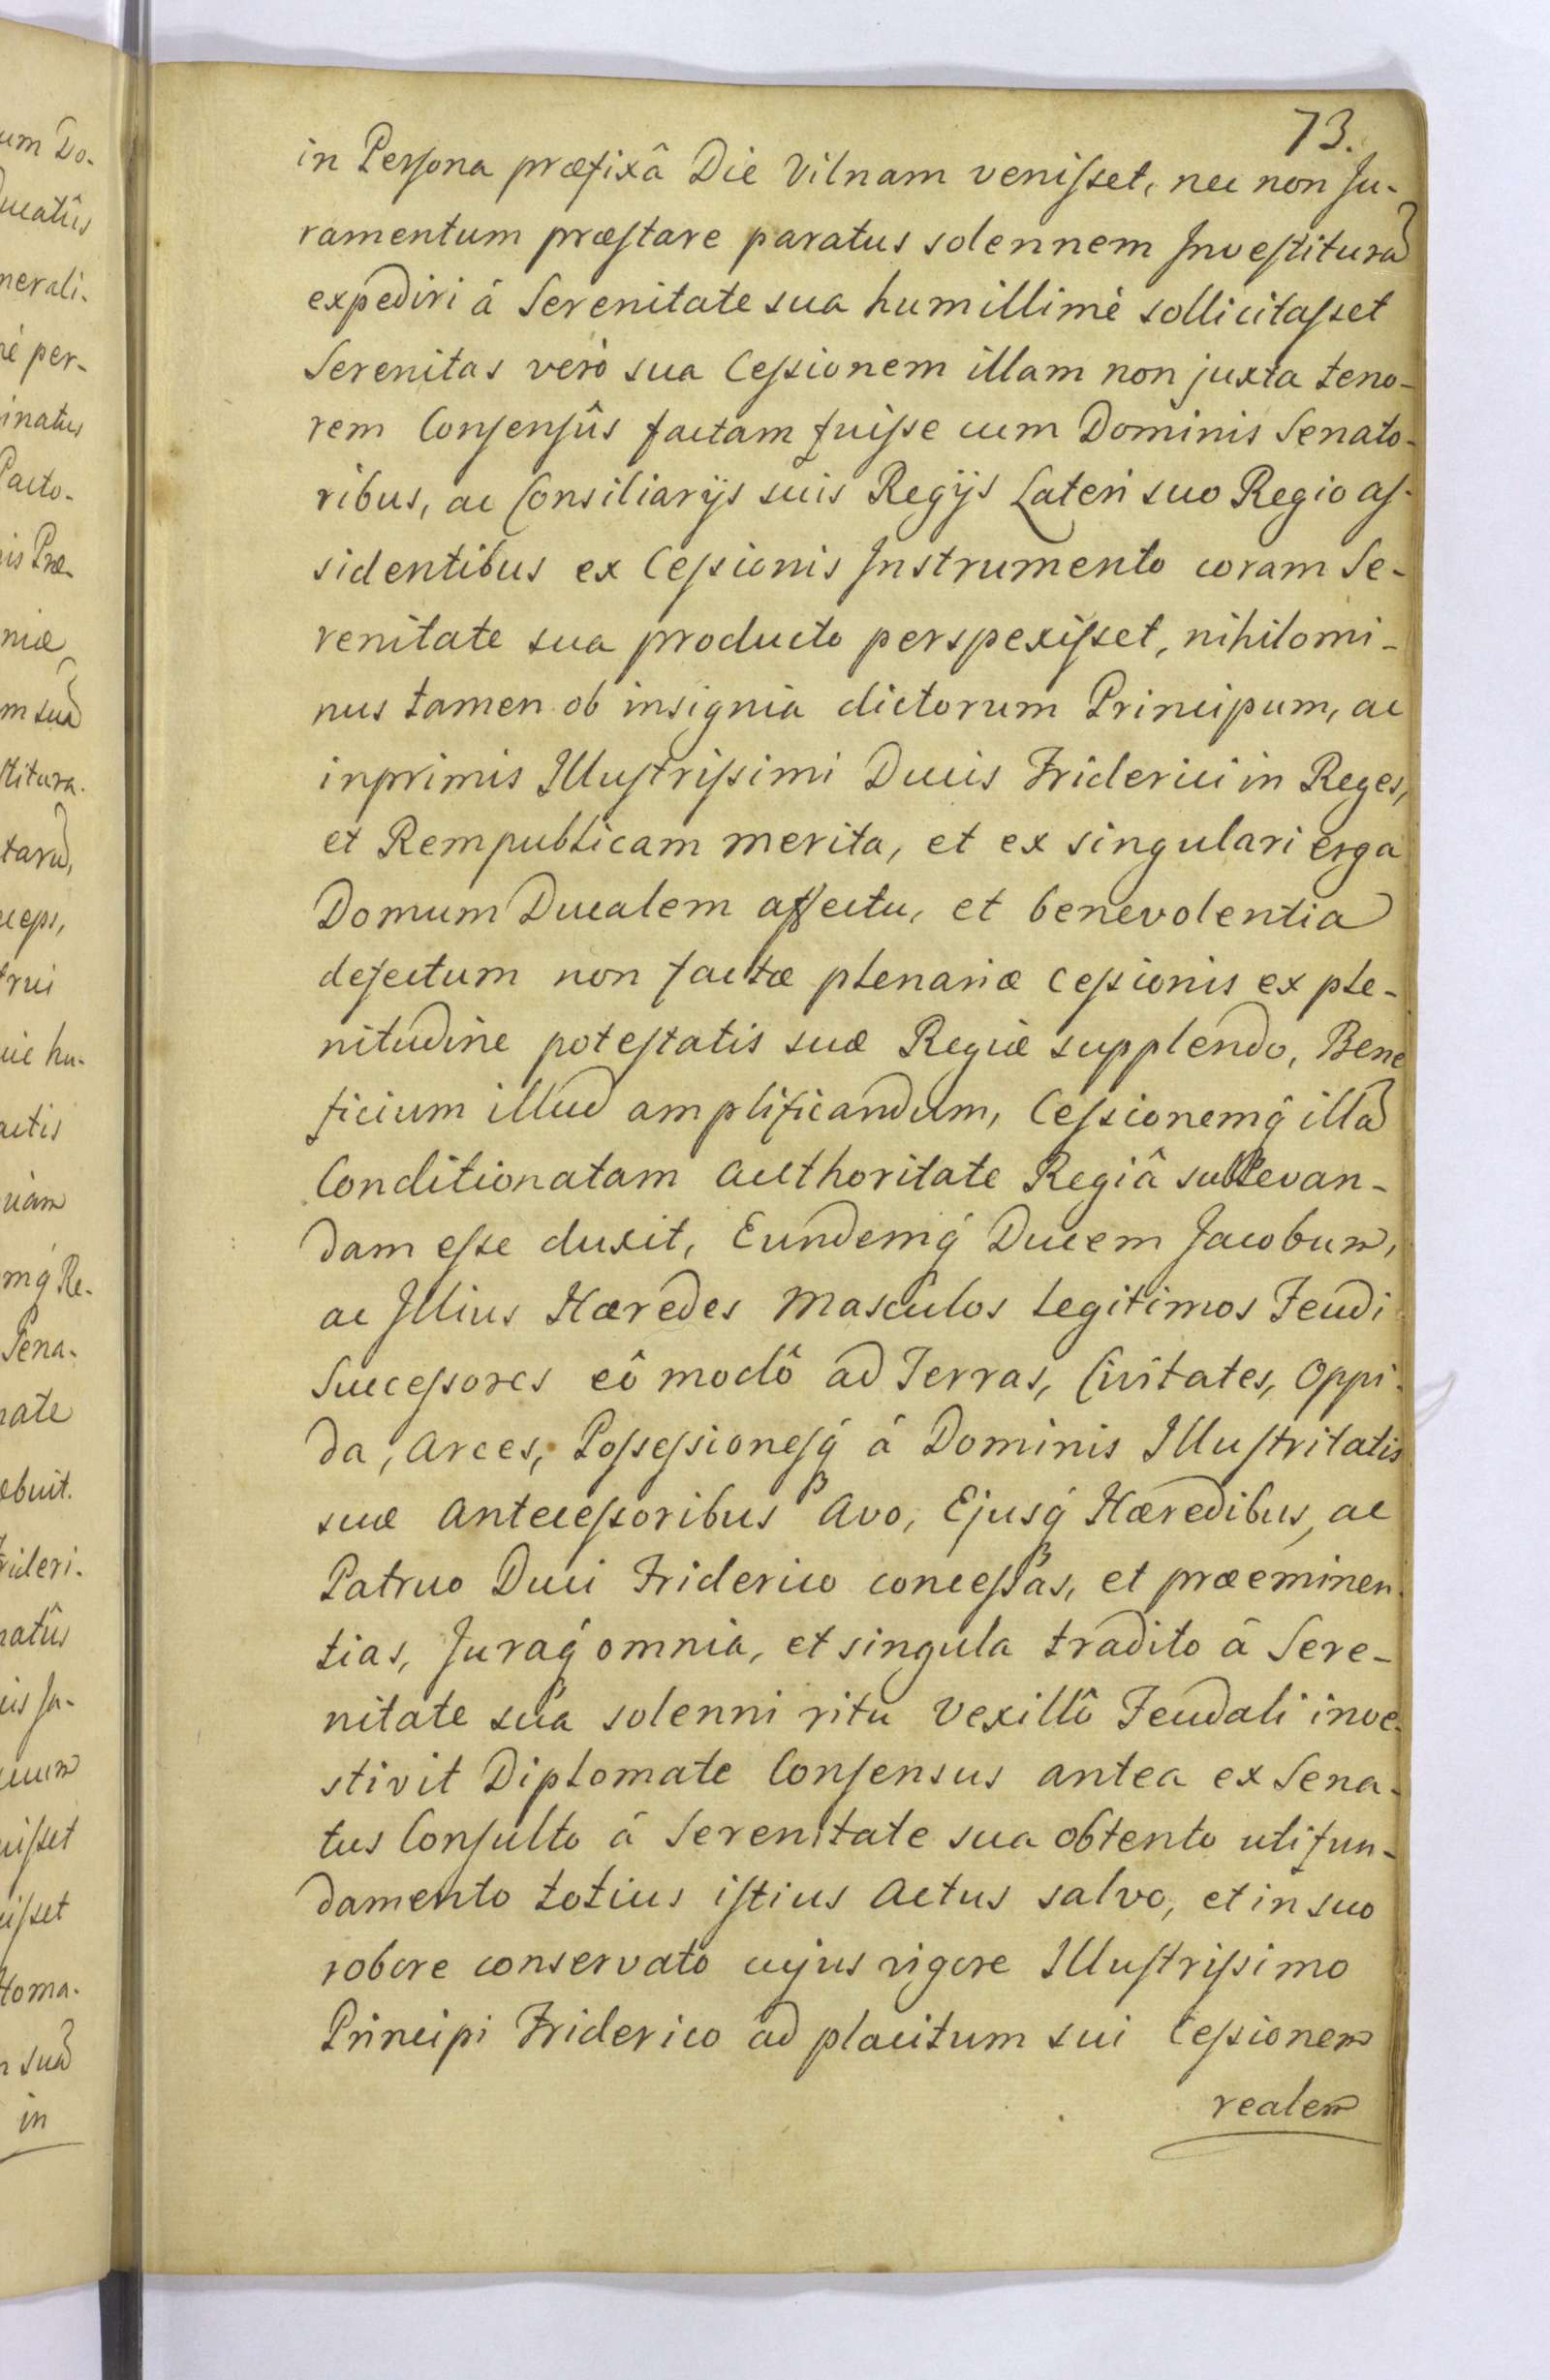 73.
in Perſona præfixâ Die Vilnam veniſset, nec non Ju-
ramentum præſtare paratus solennem Inveſtiturã
expediri á Serenitate sua humillimè sollicitaſset
Serenitas verò sua Ceſsionem illam non juxta teno-
rem Conſenſûs factam fuiſse cum Dominis Senato-
ribus, ac Consiliarijs suis Regijs Lateri suo Regio aſ-
sidentibus ex Ceſsionis Instrumento coram Se-
renitate sua producto perspexiſset, nihilomi-
nus tamen ob insignia dictorum Principum, ac
inprimis Illuſtriſsimi Ducis Friderici in Reges,
et Rempublicam merita, et ex singulari erga
Domum Ducalem affectu, et benevolentia
defectum non factæ plenariæ ceſsionis ex ple-
nitudine poteſtatis suæ Regiæ supplendo, Bene
ficium illud amplificandum, Ceſsionemq́ illã
Conditionatam Authoritate Regiâ sublevan-
dam eſse duxit, Eundemq́ Ducem Jacobum,
ac Illius Hæredes Masculos Legitimos Feudi
Succeſsores eô modô ad Terras, Civitates, Oppi-
da, Arces, Poſseſsioneſq́ á Dominis Illuſtritatis
suæ Anteceſsoribus Avo, Ejusq́ Hæredibus, ac
Patruo Duci Friderico conceſsas, et præeminen-
tias, Juraq́ omnia, et singula tradito á Sere-
nitate sua solenni ritu Vexillô Feudali inve-
stivit Diplomate Conſensus antea ex Sena-
tus Conſulto á Serenitate sua obtento uti fun-
damento totius iſtius Actus salvo, et in suo
robore conservato cujus vigore Illuſtriſsimo
Principi Friderico ad placitum sui Ceſsionem
realem
um Do-
Ducatûs
nerali-
né per-
inatus
Pacto-
is Præ-
niæ
m suã
ſtitura-
tarũ,
ceps,
ue hu-
actis
mq́ Re-
Sena-
nate
ebuit.
rideri-
natûs
is Ju-
uiſset
uiſset
loma-
suã
in